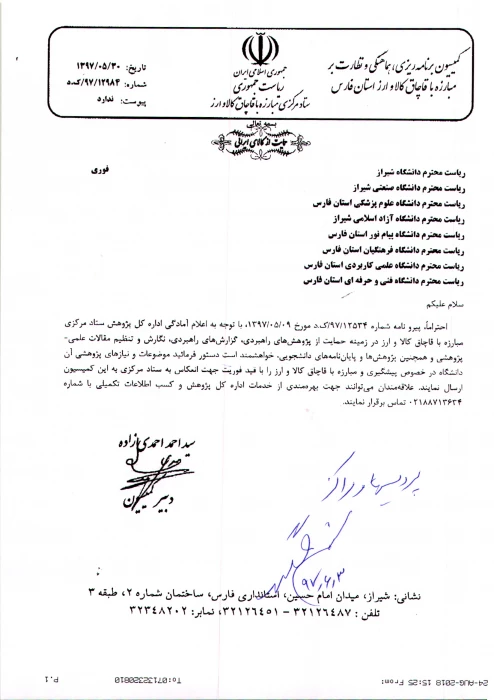 کمیسیون برنامه ریزی، هماهنگی و نظارت بر
مبارزه با قاچاق کالا و ارز استان فارس
جمهوری اسلامی ایران
ریاست جمهوری
ستاد مرکزی مبارزه با قاچاق کالا و ارز
تاریخ: ۱۳۹۷/۰۵/۳۰
شماره: ۹۷/۱۲۹۸۴/ک.د
پیوست: ندارد
بسمه تعالی
حمایت از کالای ایرانی
فوری
ریاست محترم دانشگاه شیراز
ریاست محترم دانشگاه صنعتی شیراز
ریاست محترم دانشگاه علوم پزشکی استان فارس
ریاست محترم دانشگاه آزاد اسلامی شیراز
ریاست محترم دانشگاه پیام نور استان فارس
ریاست محترم دانشگاه فرهنگیان استان فارس
ریاست محترم دانشگاه علمی کاربردی استان فارس
ریاست محترم دانشگاه فنی و حرفه ای استان فارس
سلام علیکم
احتراماً، پیرو نامه شماره ۹۷/۱۲۵۳۴/ک.د مورخ ۱۳۹۷/۰۵/۰۹، با توجه به اعلام آمادگی اداره کل پژوهش ستاد مرکزی
مبارزه با قاچاق کالا و ارز در زمینه حمایت از پژوهش‌های راهبردی، گزارش‌های راهبردی، نگارش و تنظیم مقالات علمی-
پژوهشی و همچنین پژوهش‌ها و پایان‌نامه‌های دانشجویی، خواهشمند است دستور فرمائید موضوعات و نیازهای پژوهشی آن
دانشگاه در خصوص پیشگیری و مبارزه با قاچاق کالا و ارز را با قید فوریت جهت انعکاس به ستاد مرکزی به این کمیسیون
ارسال نمایند. علاقه‌مندان می‌توانند جهت بهره‌مندی از خدمات اداره کل پژوهش و کسب اطلاعات تکمیلی با شماره
۰۲۱۸۸۷۱۳۶۳۴ تماس برقرار نمایند.
سید احمد احمدی زاده
دبیر کمیسیون
پردیسها و مراکز
۹۷/۶/۳
نشانی: شیراز، میدان امام حسین، استانداری فارس، ساختمان شماره ۲، طبقه ۳
تلفن : ۳۲۱۲۶۴۸۷ - ۳۲۱۲۶۴۵۱، نمابر: ۳۲۳۴۸۲۰۲
24-AUG-2018 15:25 From: To:07132320810 P.1